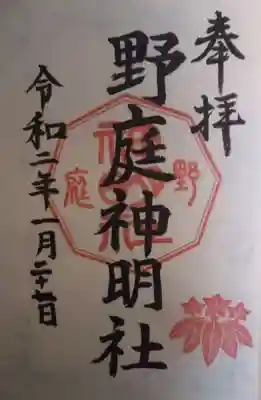 奉拝
野庭神明社
令和二年一月二十七日
野
庭